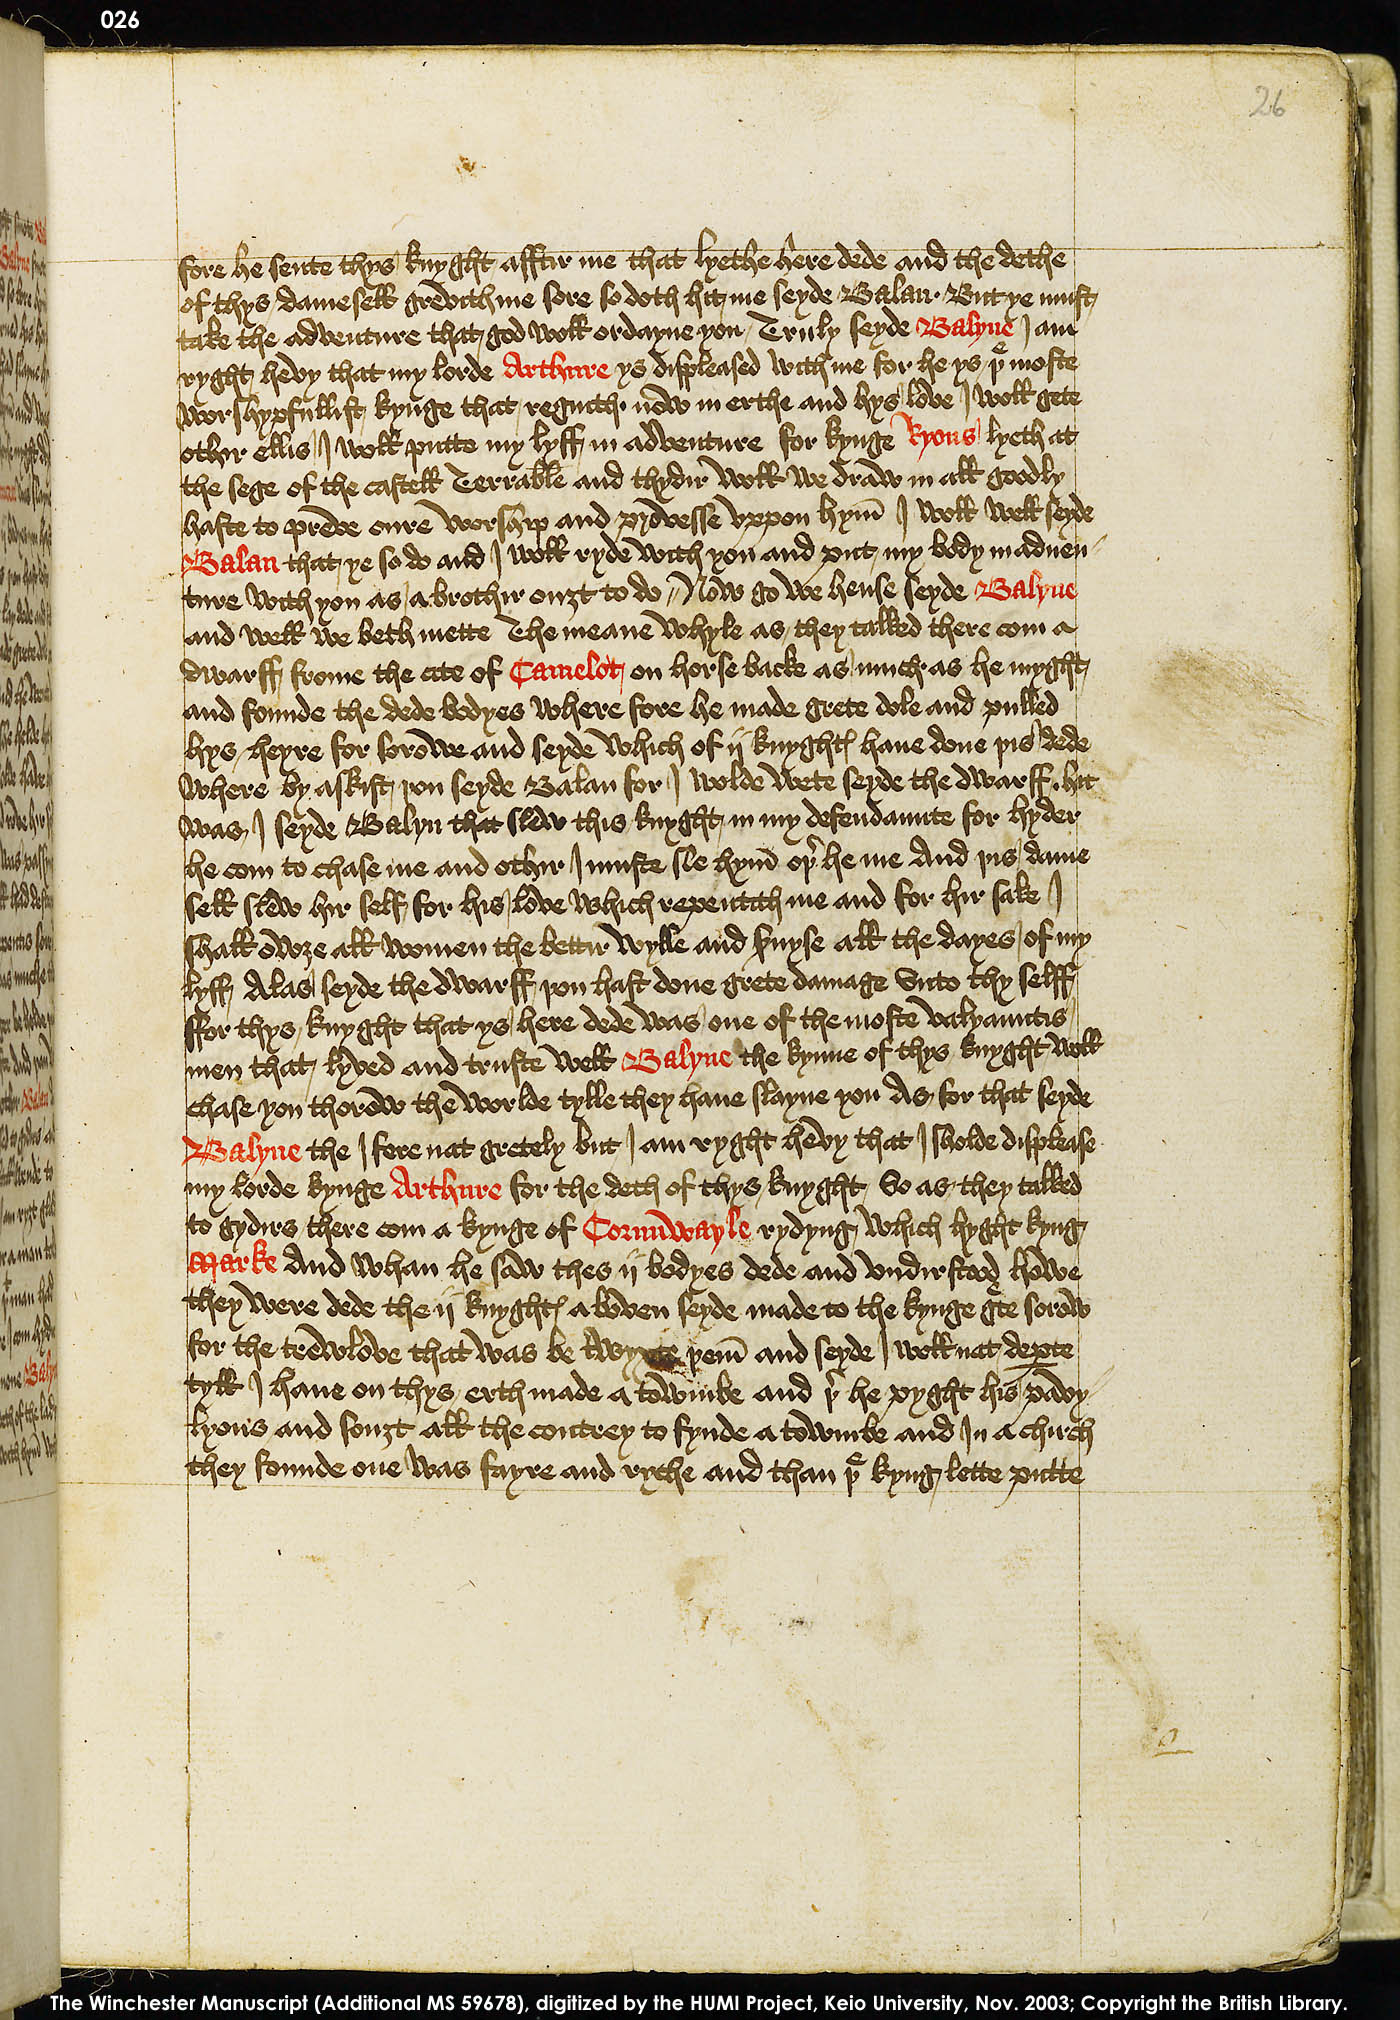 026
26
fore he sente thys knyght afftir me that lyethe here dede and the dethe
of thys damesell grevith me sore so doth hit me seyde Balan But ye must
take the adventure that god woll ordayne you Truly seyde Balyne I am
ryght hevy that my lorde Arthure ys displeased with me for he ys þe moste
worshypfullist kynge that regnith now in erthe and hys love I woll gete
othir ellis I woll putte my lyff in adventure for kynge Ryons lyeth at
the sege of the castell Terrable and thydir woll we draw in all goodly
haste to preve oure worship and prouesse uppon hym I woll well seyde
Balan that ye so do and I woll ryde with you and put my body in aduen
ture with you as a brothir ouȝt to do // Now go we hense seyde Balyne
and well we beth mette The meane whyle as they talked there com a
dwarff frome the cite of Camelot on horse backe as much as he myght
and founde the dede bodyes where fore he made grete dole and pulled
hys heyre for sorowe and seyde which of ij knyghtes have done þis dede
where by askist þou seyde Balan for I wolde wete seyde the dwarff hit
was I seyde Balyn that slew this knyght in my defendaunte for hyder
he com to chase me and othir I muste sle hym oþir he me And þis dame
sell slew hir self for his love which repentith me and for hir sake I
shall owȝe all women the bettir wylle and servyse all the dayes of my
lyff Alas seyde the dwarff þou hast done grete damage unto thy selff
ffor thys knyght that ys here dede was one of the moste valyauntis
men that lyved and truste well Balyne the kynne of thys knyght woll
chase you thorow the worlde tylle they have slayne you As for that seyde
Balyne the I fere nat gretely but I am ryght hevy that I sholde displease
my lorde kynge Arthure for the deth of thys knyght So as they talked
to gydirs there com a kynge of Cornuwayle rydyng which hyght kyng
Marke And whan he saw thes ij bodyes dede and undirstood howe
they were dede the ij knyghtes aboven seyde made to the kynge grete sorow
for the trew love that was be twyxte þem and seyde I woll nat departe
tyll I have on thys erth made a towmbe and þer he pyght his pavy
lyons and souȝt all the contrey to fynde a towmbe and In a church
they founde one was fayre and ryche and than þe kyng lette putte
The Winchester Manuscript (Additional MS 59678), digitized by the HUMI Project, Keio University, Nov. 2003; Copyright the British Library.